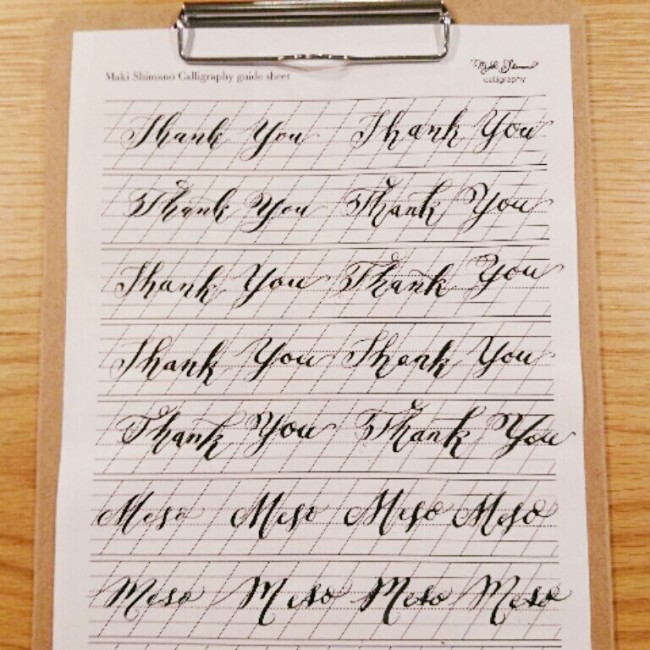 Maki Shimano Calligraphy guide sheet
Maki Shimano
calligraphy
Thank You Thank You
Thank You Thank You
Thank You Thank You
Thank You Thank You
Thank You Thank You
Meso Meso Meso Meso
Meso Meso Meso Meso